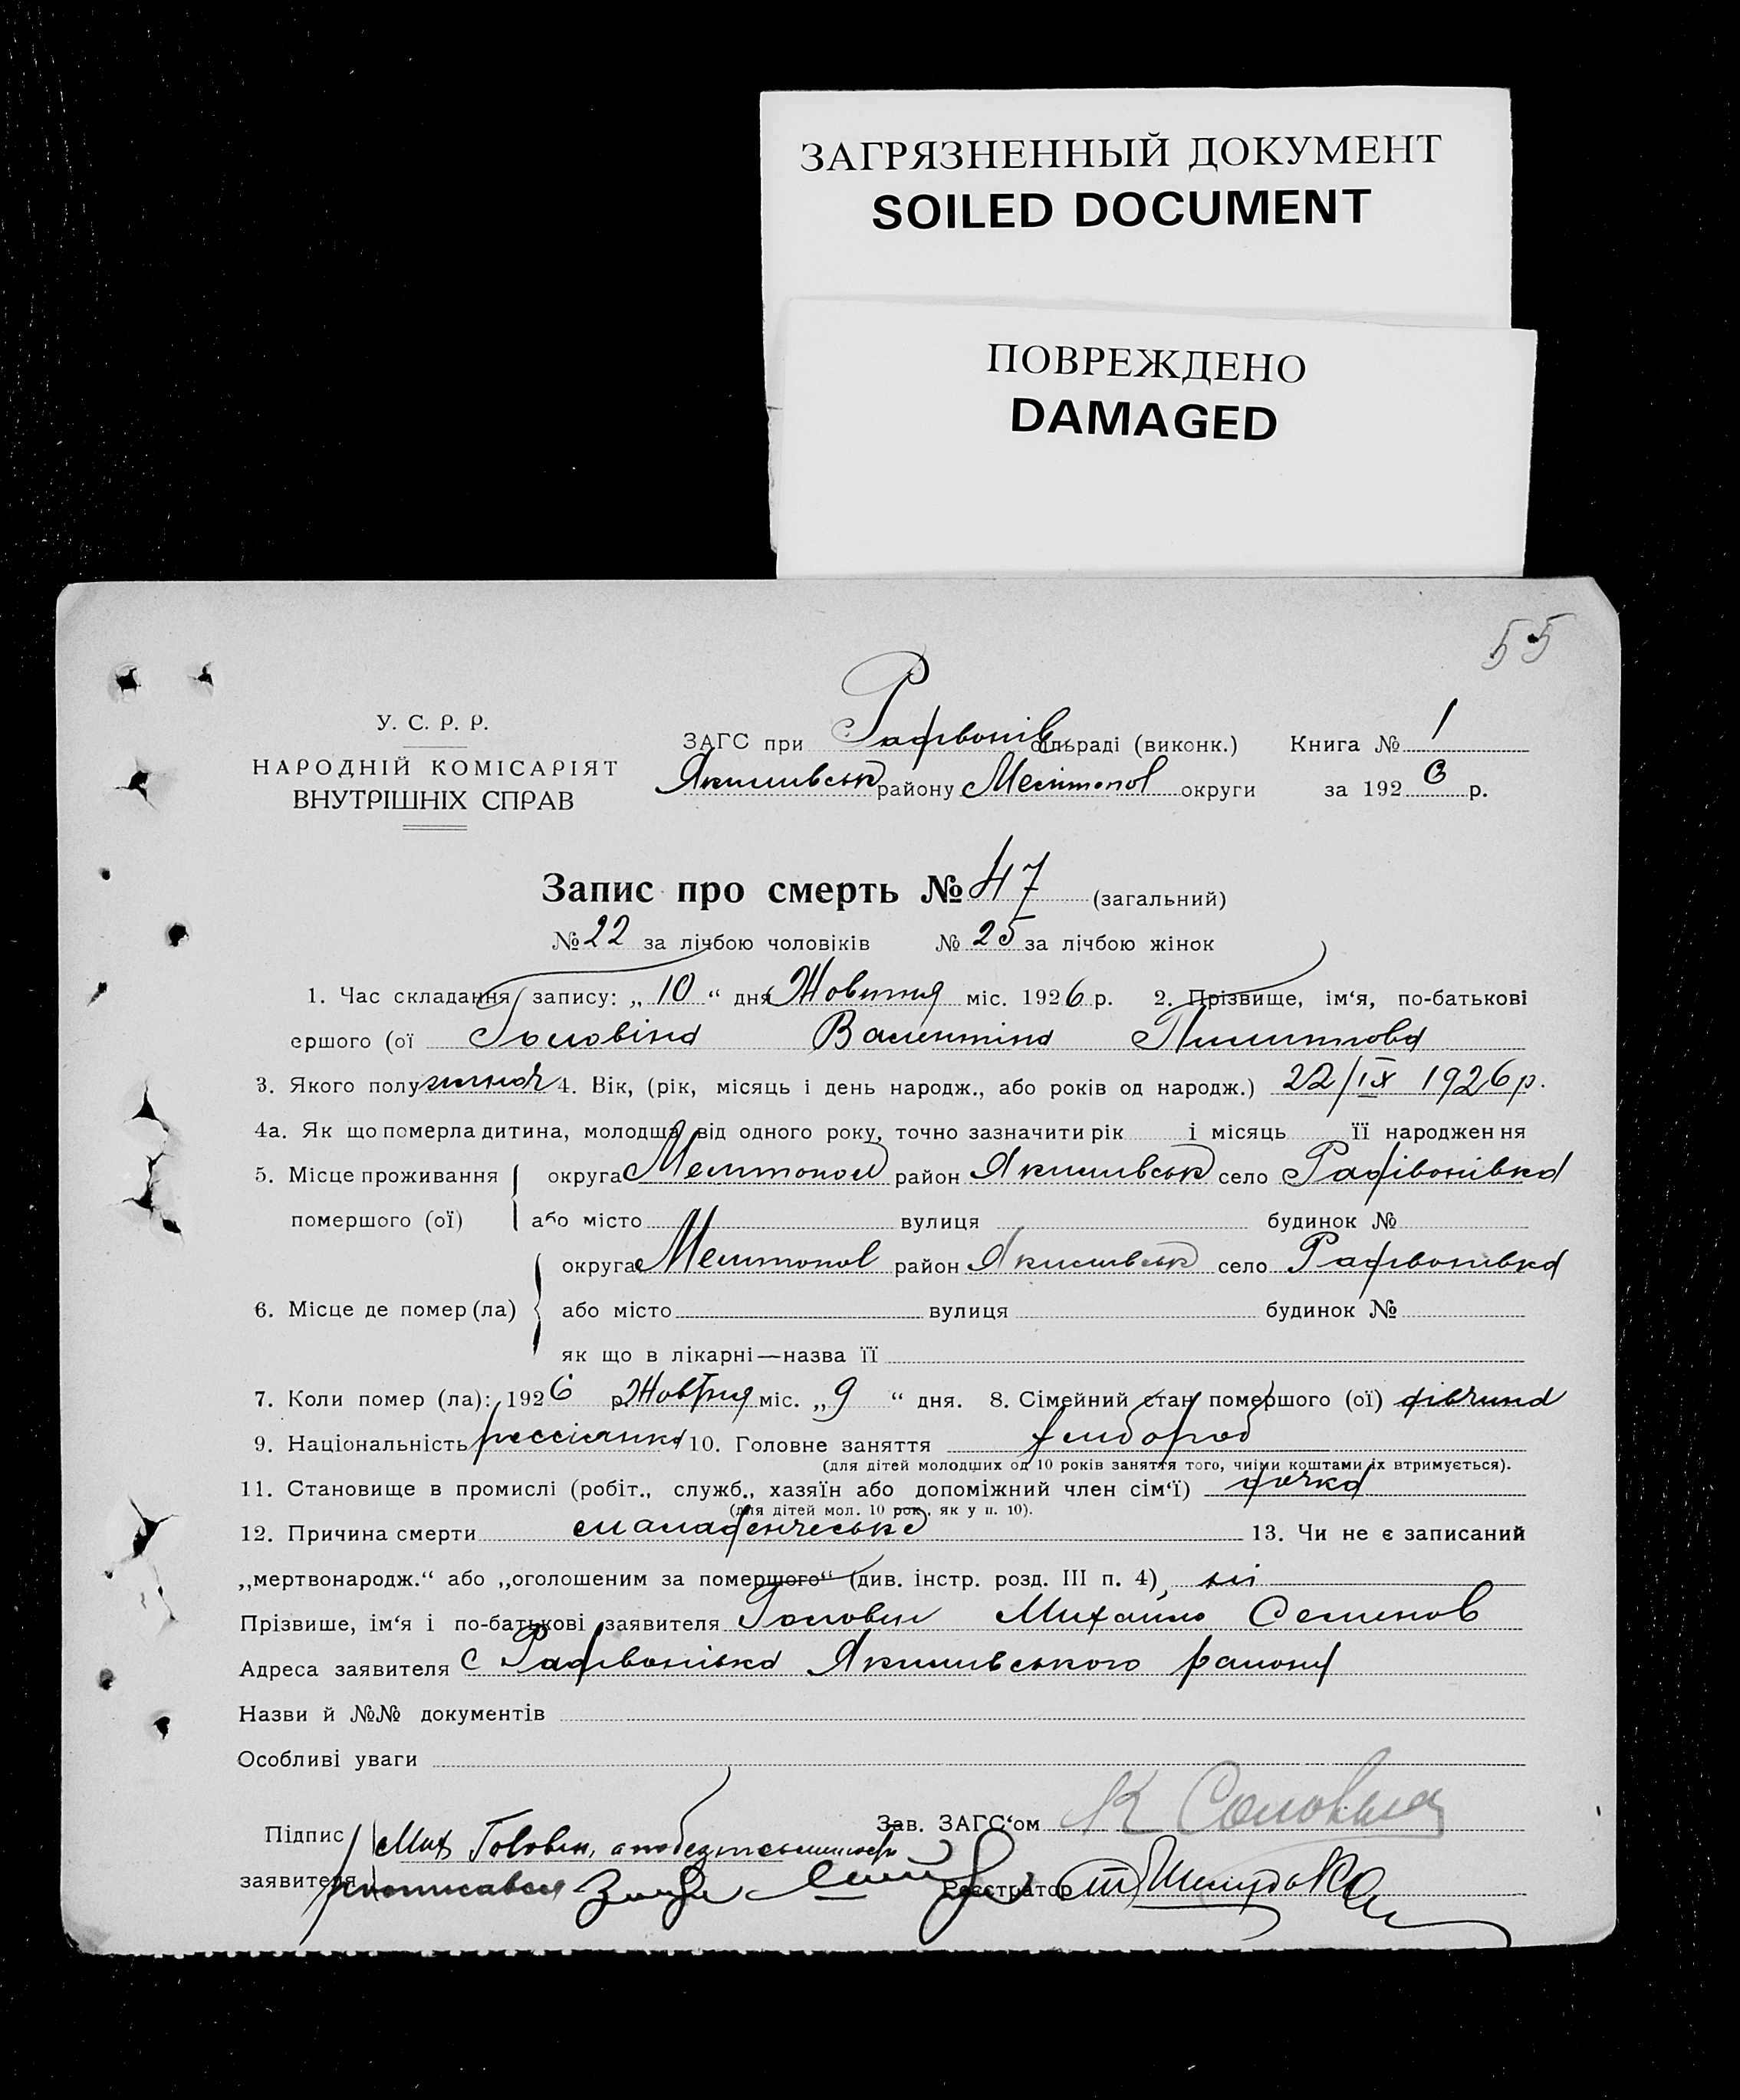 ЗАГРЯЗНЕННЫЙ ДОКУМЕНТ
SOILED DOCUMENT
ПОВРЕЖДЕНО
DAMAGED
55
У. С. Р. Р.
НАРОДНІЙ КОМІСАРІЯТ
ВНУТРІШНІХ СПРАВ
ЗАГС при Радівонів сільраді (виконк.) Книга № 1
Якимівськ району Мелітопол округи за 192 6 р.
Запис про смерть № 47 (загальний)
№ 22 за лічбою чоловіків № 25 за лічбою жінок
1. Час складання запису: „ 10 “ дня Жовтня міс. 1926 р. 2. Прізвище, ім‘я, по-батькові
ершого (ої Головіна Валентіна
3. Якого полу жіноч 4. Вік, (рік, місяць і день народж., або років од народж.) 22/IX 1926 р.
4а. Як що померла дитина, молодша від одного року, точно зазначити рік і місяць її народження
5. Місце проживання округа Мелитопол район Якимивськ село Радівонівка
помершого (ої) або місто вулиця будинок №
округа Мелитопол район Якимивськ село Радивонивка
6. Місце де помер (ла) або місто вулиця будинок №
як що в лікарні—назва її
7. Коли помер (ла): 1926 р Жовтня міс. „ 9 “ дня. 8. Сімейний стан помершого (ої) дівчина
9. Національність 10. Головне заняття хлибороб
(для дітей молодших од 10 років заняття того, чиїми коштами їх втримується).
11. Становище в промислі (робіт., служб., хазяїн або допоміжний член сім‘ї) дочка
(для дітей мол. 10 рок., як у п. 10).
12. Причина смерти 13. Чи не є записаний
„мертвонародж.“ або „оголошеним за помершого“ (див. інстр. розд. III п. 4) ні
Прізвише, ім‘я і по-батькові заявителя Головин Михайло Семенов
Адреса заявителя с Радивонівка Якимивського району
Назви й №№ документів
Особливі уваги
Підпис Мих Головин,
Зав. ЗАГС‘ом К
заявителя
Реєстратор